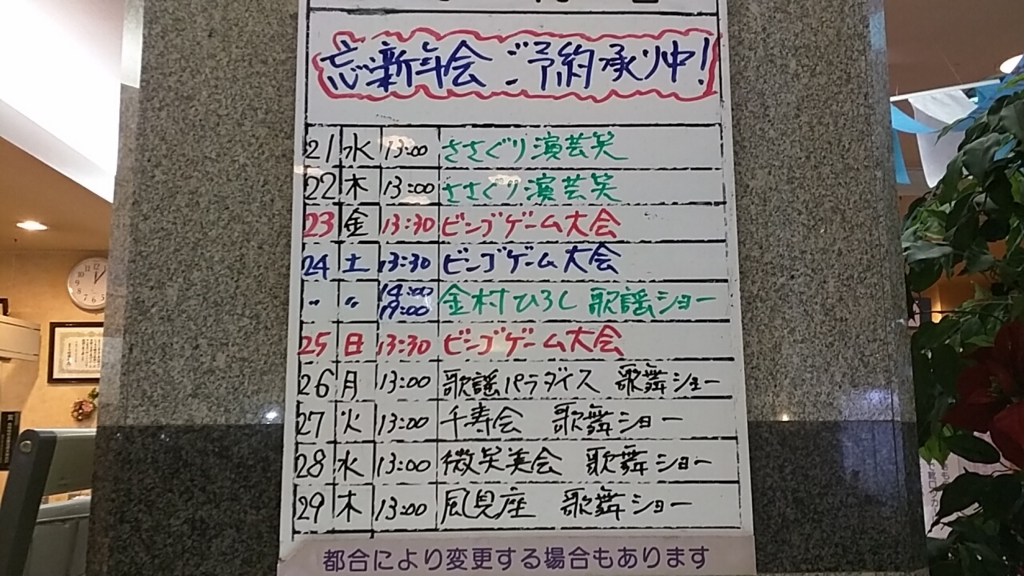 忘新年会 ご予約承り中!
21 水 13:00 ささぐり演芸笑
22 木 13:00 ささぐり演芸笑
23 金 13:30 ビンゴゲーム大会
24 土 13:30 ビンゴゲーム大会
〃 〃 14:00 19:00 金村ひろし 歌謡ショー
25 日 13:30 ビンゴゲーム大会
26 月 13:00 歌謡パラダイス 歌舞ショー
27 火 13:00 千寿会 歌舞ショー
28 水 13:00 微笑美会 歌舞ショー
29 木 13:00 風見座 歌舞ショー
都合により変更する場合もあります